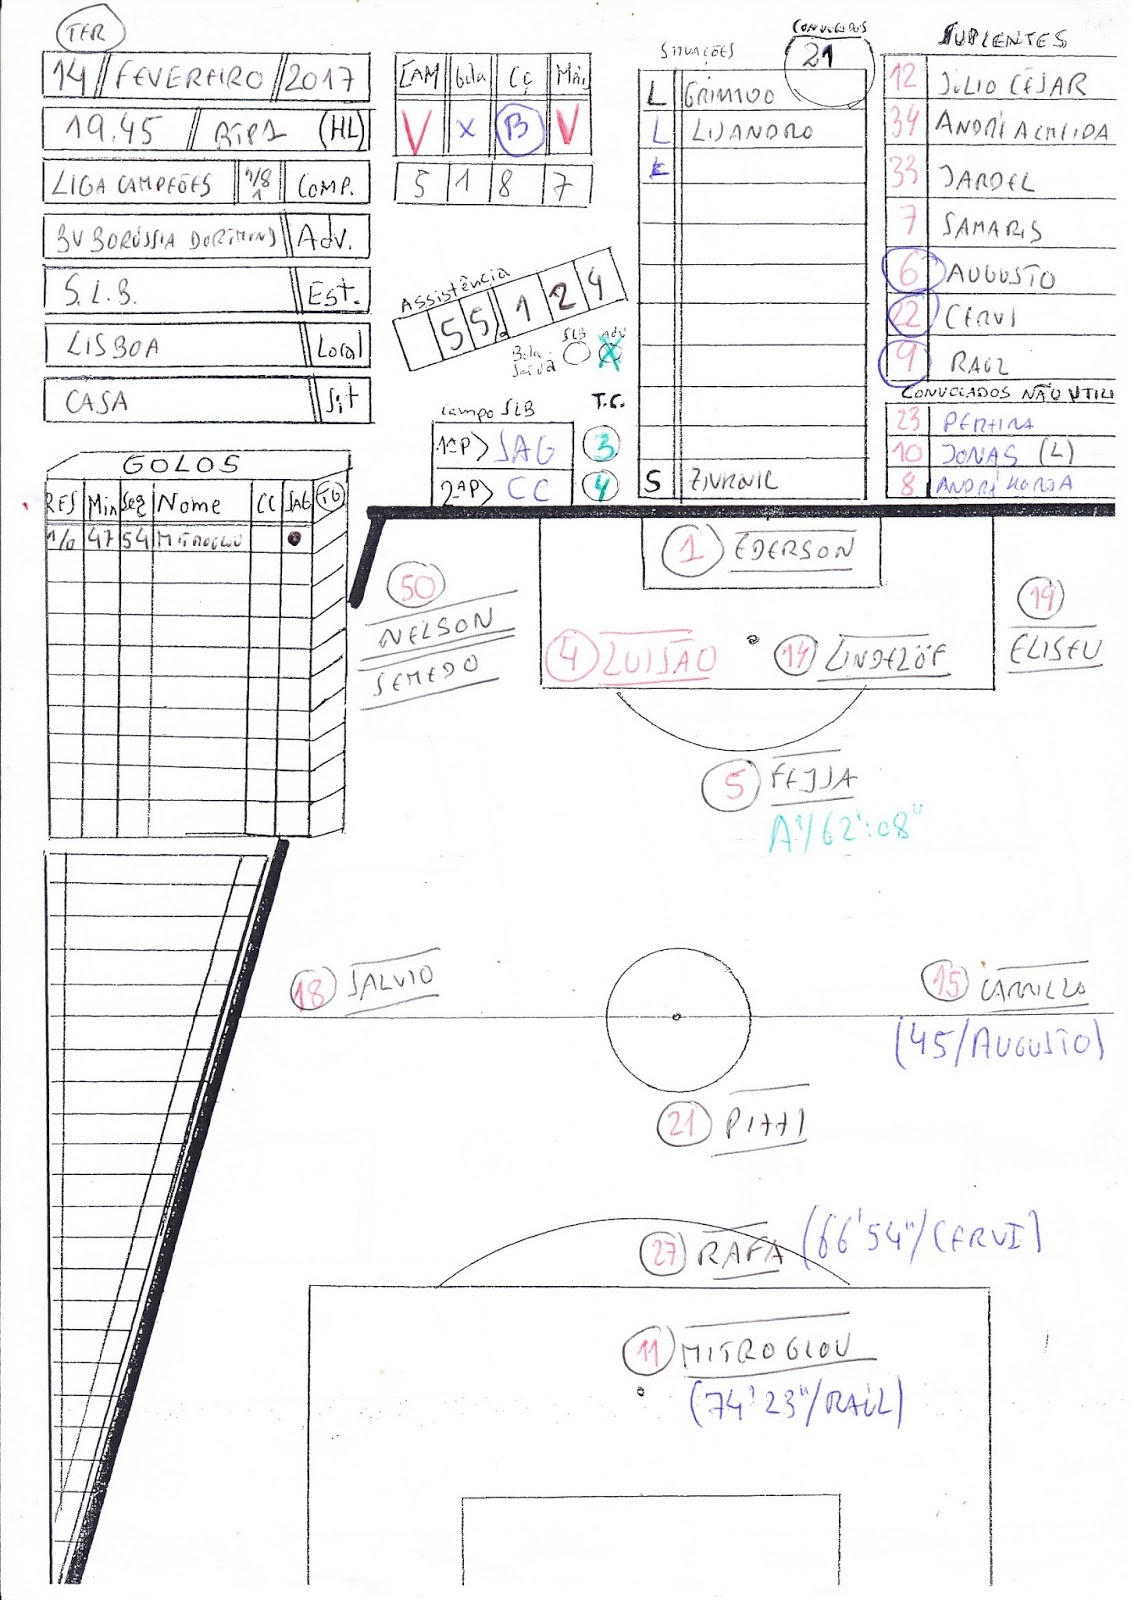 TER
14 // FEVEREIRO // 2017
19.45 / RTP1 (HL)
LIGA CAMPEÕES 1/8 1 COMP.
BV BORÚSSIA DORTMUND Adv.
S.L.B. Est.
LISBOA Local
CASA Sit
CAM Cç
V X B V
5 1 8 7
Assistência
55.124
Bola Saída SLB Adv
X
Campo SLB T.C.
1ªP> SAG 3
2ªP> CC 4
SITUAÇÕES
L GRIMALDO
L LISANDRO
S ZIVKOVIC
CONVOCADOS
21
SUPLENTES
12 JÚLIO CÉSAR
34 ANDRÉ ALMEIDA
33 JARDEL
7 SAMARIS
6 AUGUSTO
22 CERVI
9 RAÚL
CONVOCADOS NÃO UTILI
23 PEREIRA
10 JONAS (L)
8 ANDRÉ HORTA
GOLOS
RES Min Seg Nome CC SAG TG
1/0 47 54 MITROGLOU
1 EDERSON
50 NELSON
SEMEDO
4 LUISÃO
14 LINDELÖF
19 ELISEU
5 FEJSA
A1/62':08"
18 SALVIO
15 CARRILLO
(45/AUGUSTO)
21 PIZZI
27 RAFA (66'54"/CERVI)
11 MITROGLOU
(74'23"/RAÚL)